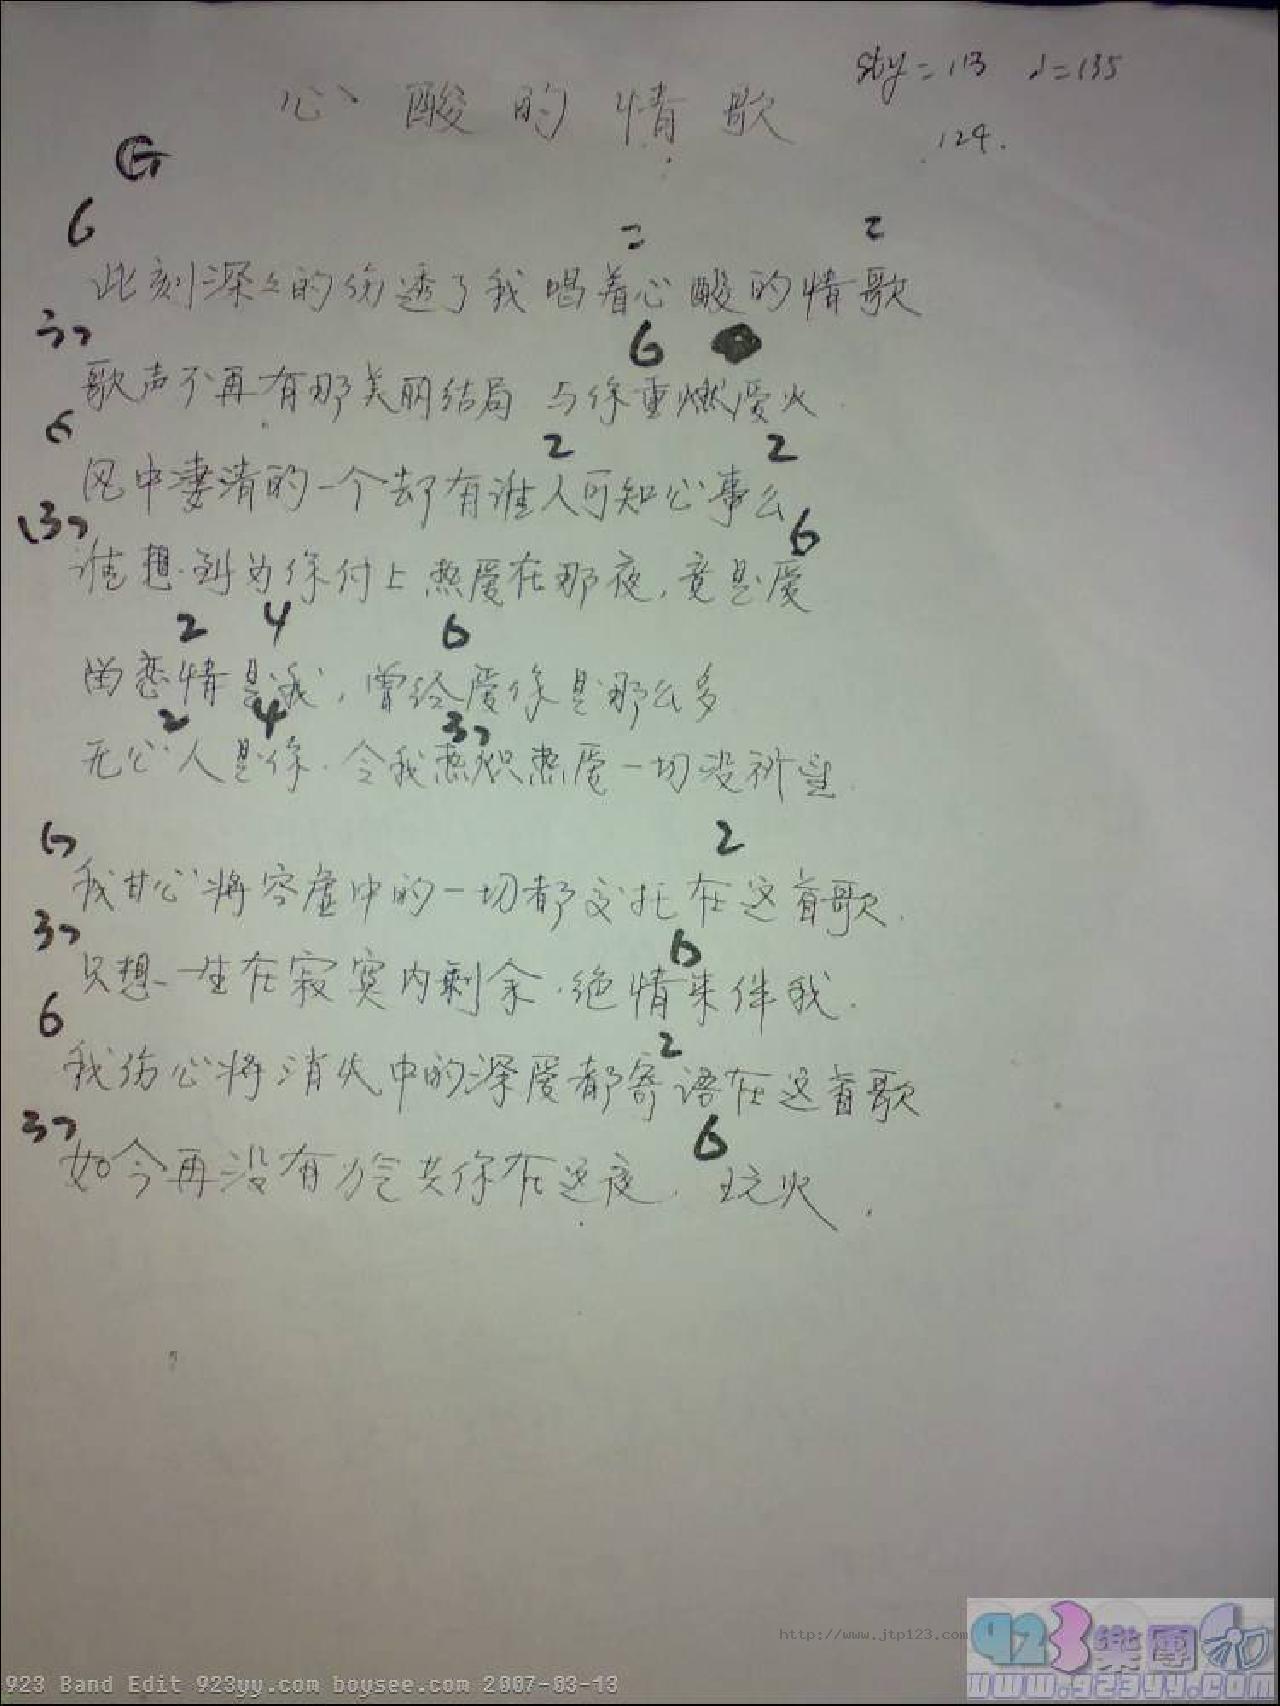 sty=113 ♩=135
心酸的情歌
124.
G
6 2 2
此刻深々的伤透了我 唱着心酸的情歌
37 6
歌声不再有那美丽结局 与你重燃爱火
6 2 2
风中凄清的一个却有谁人可知心事么
(37 6
谁想到为你付上热爱在那夜，竟是爱
2 4 6
留恋情是我，曾经爱你是那么多
2 4 37
无心人是你．令我热炽热爱一切没祈望
6 2
我甘心将容虚中的一切都交托在这首歌．
37 6
只想一生在寂寞内剩余．绝情来伴我．
6 2
我伤心将消失中的深爱都寄语在这首歌
37 6
如今再没有力气共你在这夜．玩火．
http://www.jtp123.com
923樂團
www.923yy.com
923 Band Edit 923yy.com boysee.com 2007-03-13